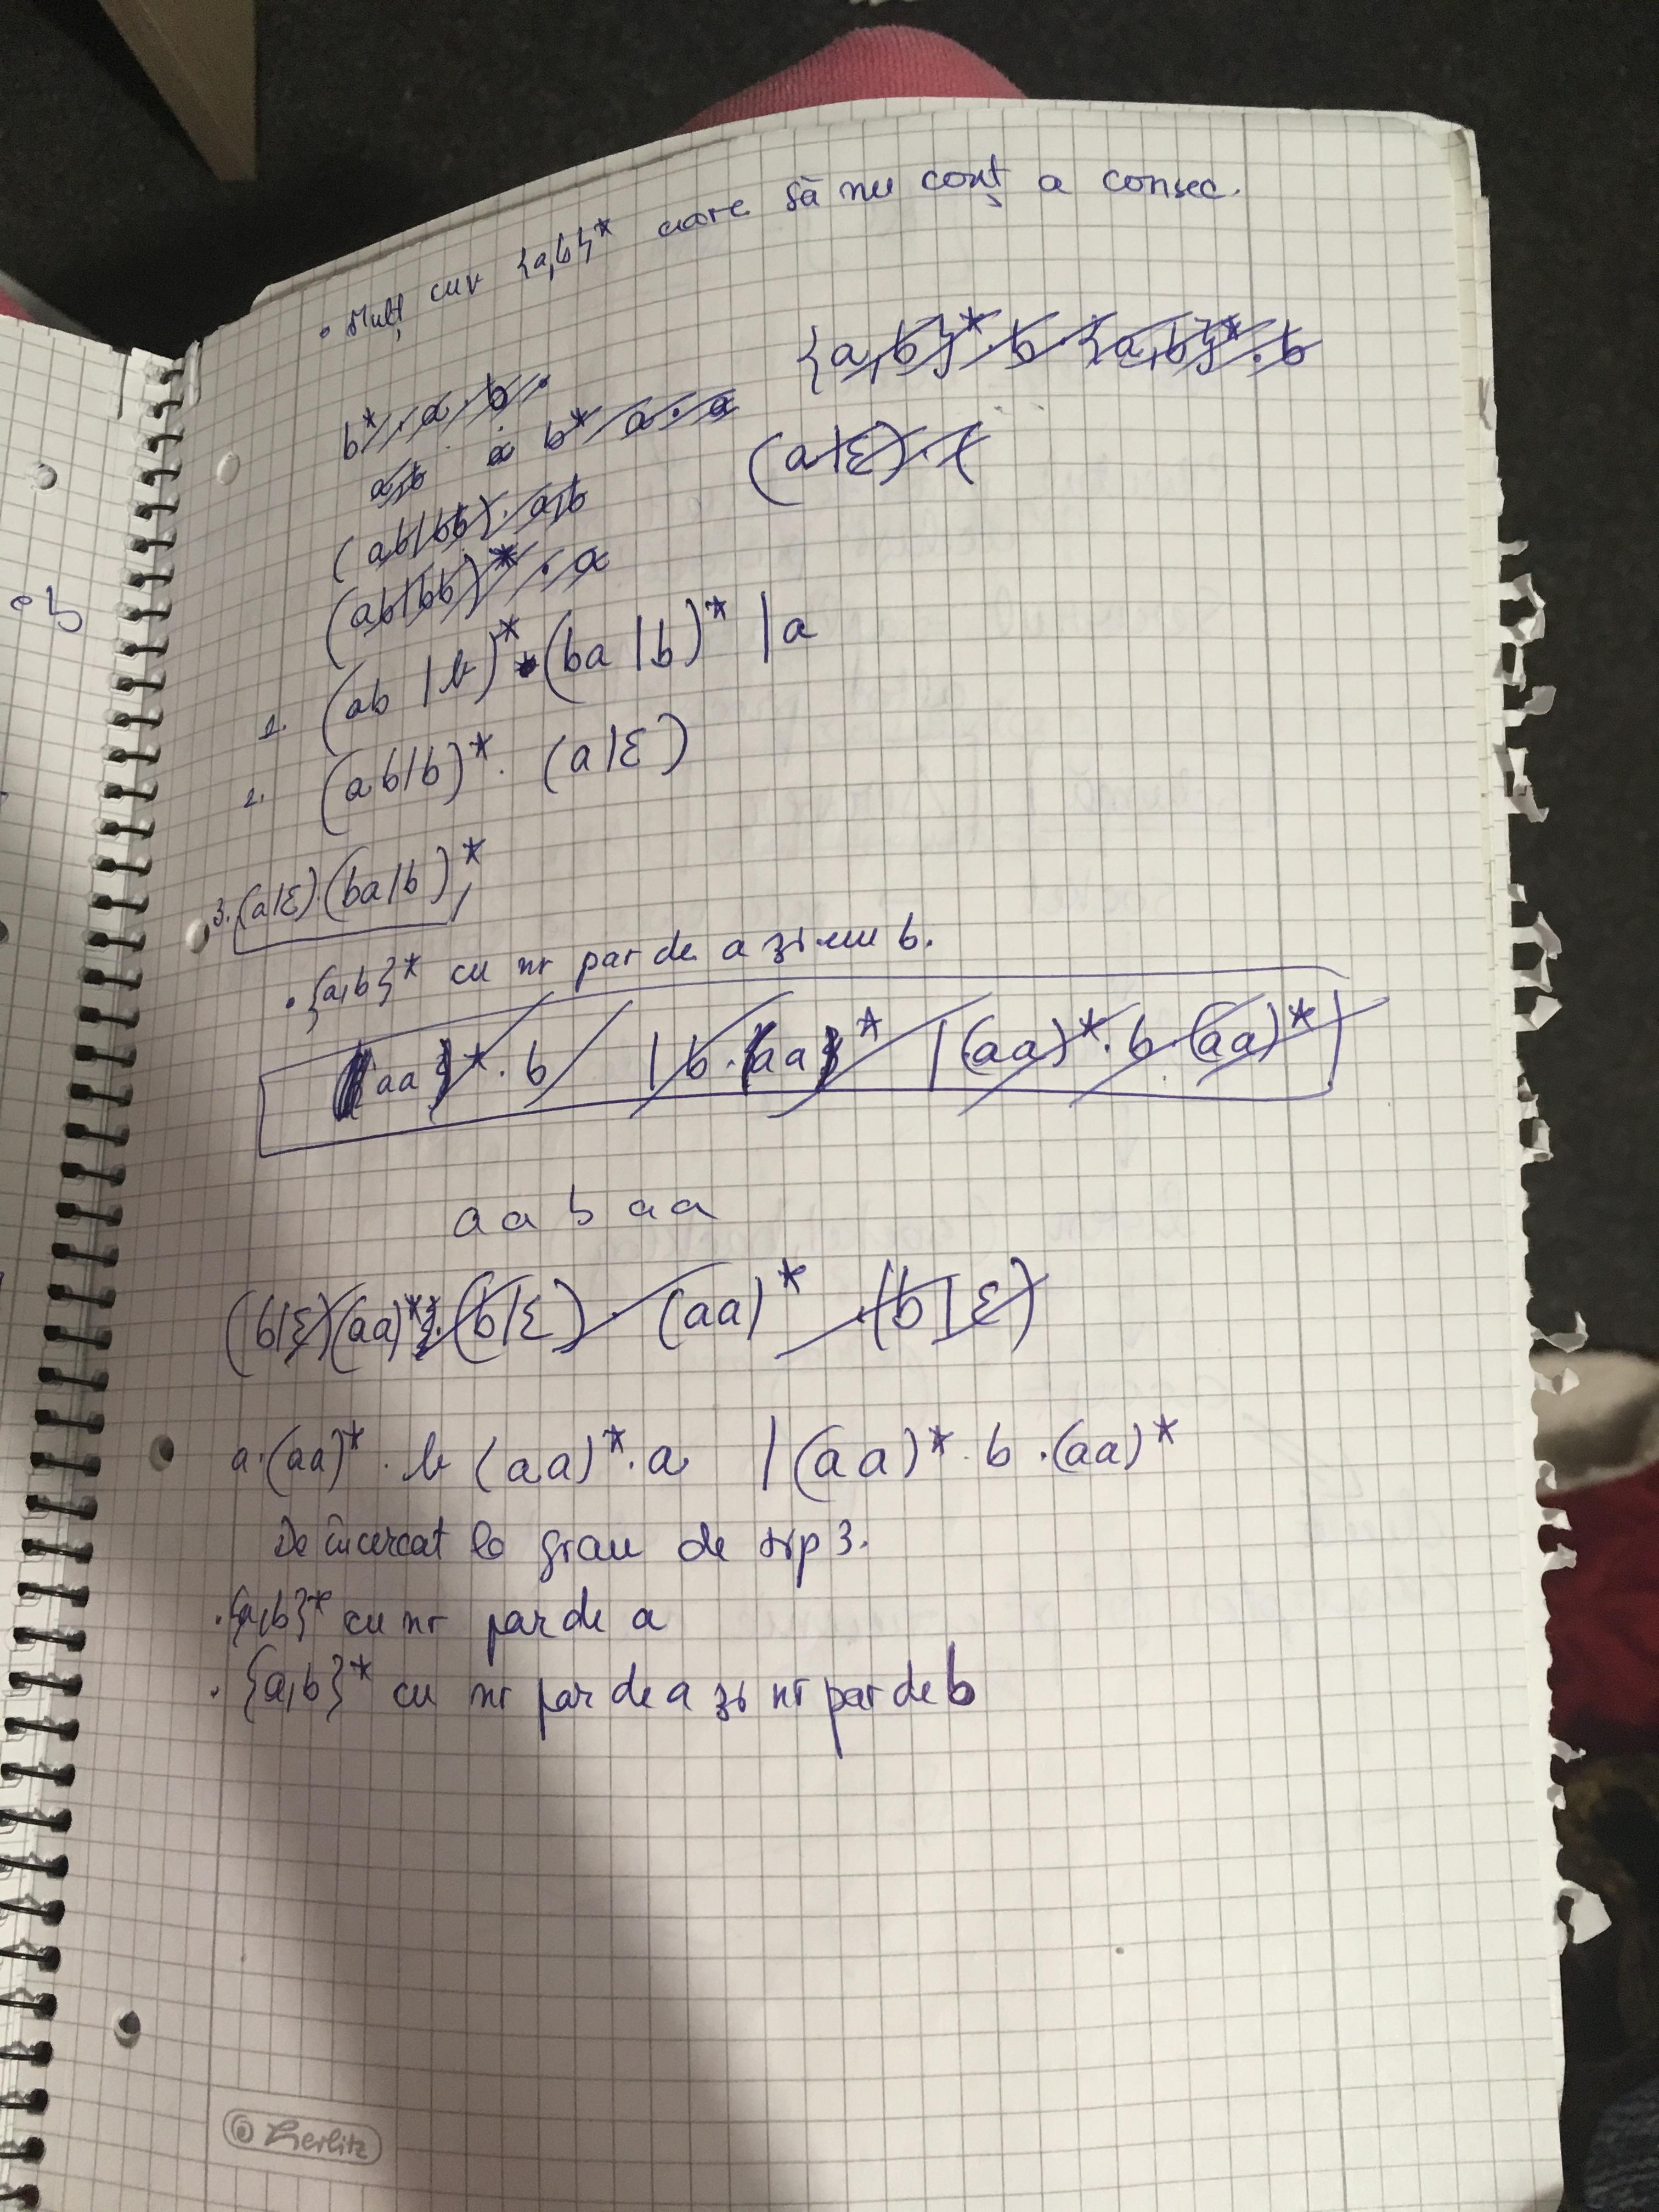 • Mulț cuv {a,b}* care să nu conț a consec.
{a,b}*·b·{a,b}*·b
b*·a·b·
a,b a b* a·a
(a|ε)·(
(ab|bb)·a,b
(ab|bb)*·a
1. (ab|b)*·(ba|b)* |a
2. (ab|b)*· (a|ε)
3. (a|ε)·(ba|b)*
• {a,b}* cu nr par de a și un b.
(aa)*·b | b·(aa)* | (aa)*·b·(aa)*
a a b a a
(b|ε)(aa)*·(b|ε)·(aa)*·(b|ε)
a·(aa)*·b (aa)*·a | (aa)*·b·(aa)*
De încercat la gram de tip 3.
·{a,b}* cu nr par de a
·{a,b}* cu nr par de a și nr par de b
Herlitz